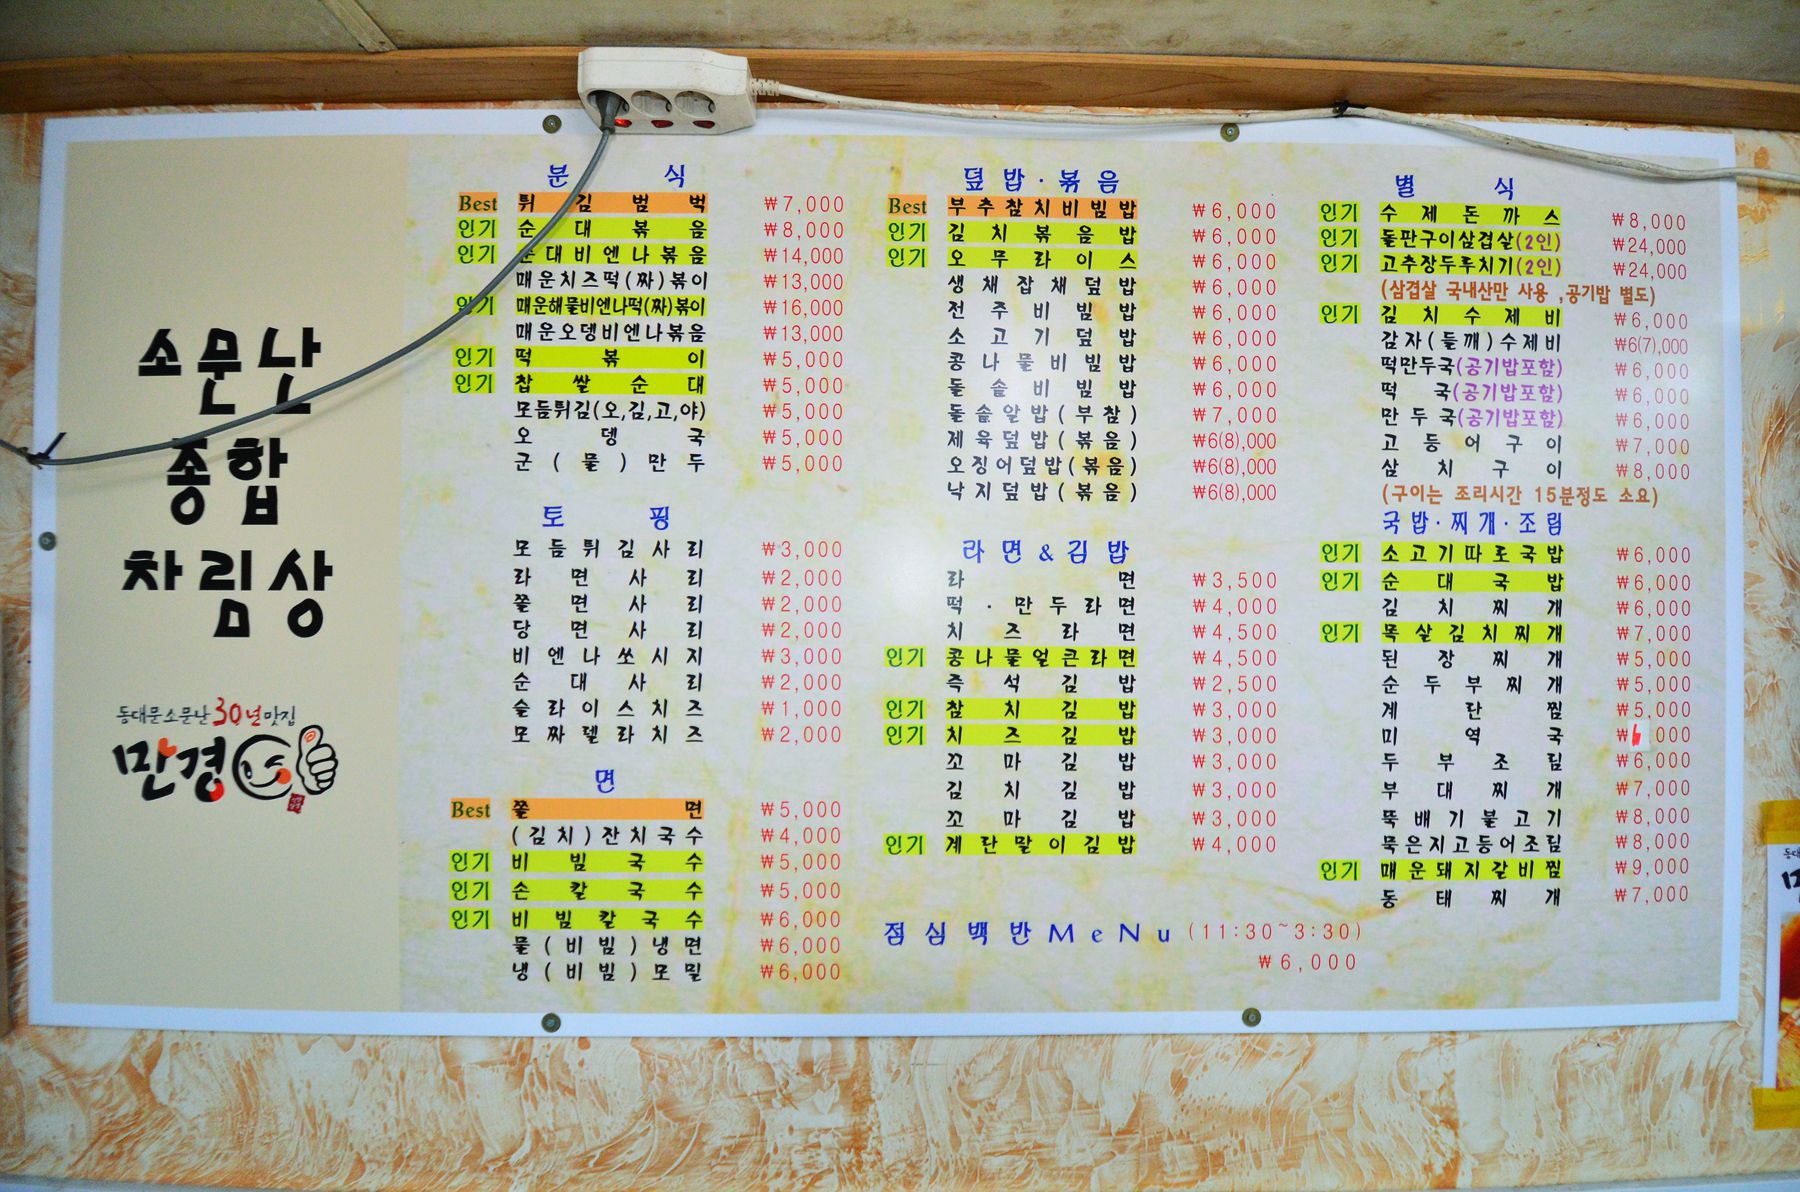 소문난
종합
차림상
동대문소문난30년맛집
만경
분식
Best 튀김범벅 ₩7,000
인기 순대볶음 ₩8,000
인기 순대비엔나볶음 ₩14,000
매운치즈떡(짜)볶이 ₩13,000
인기 매운해물비엔나떡(짜)볶이 ₩16,000
매운오뎅비엔나볶음 ₩13,000
인기 떡볶이 ₩5,000
인기 찹쌀순대 ₩5,000
모듬튀김(오,김,고,야) ₩5,000
오뎅국 ₩5,000
군(물)만두 ₩5,000
토핑
모듬튀김사리 ₩3,000
라면사리 ₩2,000
쫄면사리 ₩2,000
당면사리 ₩2,000
비엔나쏘시지 ₩3,000
순대사리 ₩2,000
슬라이스치즈 ₩1,000
모짜렐라치즈 ₩2,000
면
Best 쫄면 ₩5,000
(김치)잔치국수 ₩4,000
인기 비빔국수 ₩5,000
인기 손칼국수 ₩5,000
인기 비빔칼국수 ₩6,000
물(비빔)냉면 ₩6,000
냉(비빔)모밀 ₩6,000
덮밥·볶음
Best 부추참치비빔밥 ₩6,000
인기 김치볶음밥 ₩6,000
인기 오무라이스 ₩6,000
생채잡채덮밥 ₩6,000
전주비빔밥 ₩6,000
소고기덮밥 ₩6,000
콩나물비빔밥 ₩6,000
돌솥비빔밥 ₩6,000
돌솥알밥(부참) ₩7,000
제육덮밥(볶음) ₩6(8),000
오징어덮밥(볶음) ₩6(8),000
낙지덮밥(볶음) ₩6(8),000
라면&김밥
라면 ₩3,500
떡·만두라면 ₩4,000
치즈라면 ₩4,500
인기 콩나물얼큰라면 ₩4,500
즉석김밥 ₩2,500
인기 참치김밥 ₩3,000
인기 치즈김밥 ₩3,000
꼬마김밥 ₩3,000
김치김밥 ₩3,000
꼬마김밥 ₩3,000
인기 계란말이김밥 ₩4,000
점심백반MeNu (11:30~3:30)
₩6,000
별식
인기 수제돈까스 ₩8,000
인기 돌판구이삼겹살(2인) ₩24,000
인기 고추장두루치기(2인) ₩24,000
(삼겹살 국내산만 사용 ,공기밥 별도)
인기 김치수제비 ₩6,000
감자(들깨)수제비 ₩6(7),000
떡만두국(공기밥포함) ₩6,000
떡국(공기밥포함) ₩6,000
만두국(공기밥포함) ₩6,000
고등어구이 ₩7,000
삼치구이 ₩8,000
(구이는 조리시간 15분정도 소요)
국밥·찌개·조림
인기 소고기따로국밥 ₩6,000
인기 순대국밥 ₩6,000
김치찌개 ₩6,000
인기 목살김치찌개 ₩7,000
된장찌개 ₩5,000
순두부찌개 ₩5,000
계란찜 ₩5,000
미역국 ₩6,000
두부조림 ₩6,000
부대찌개 ₩7,000
뚝배기불고기 ₩8,000
묵은지고등어조림 ₩8,000
인기 매운돼지갈비찜 ₩9,000
동태찌개 ₩7,000